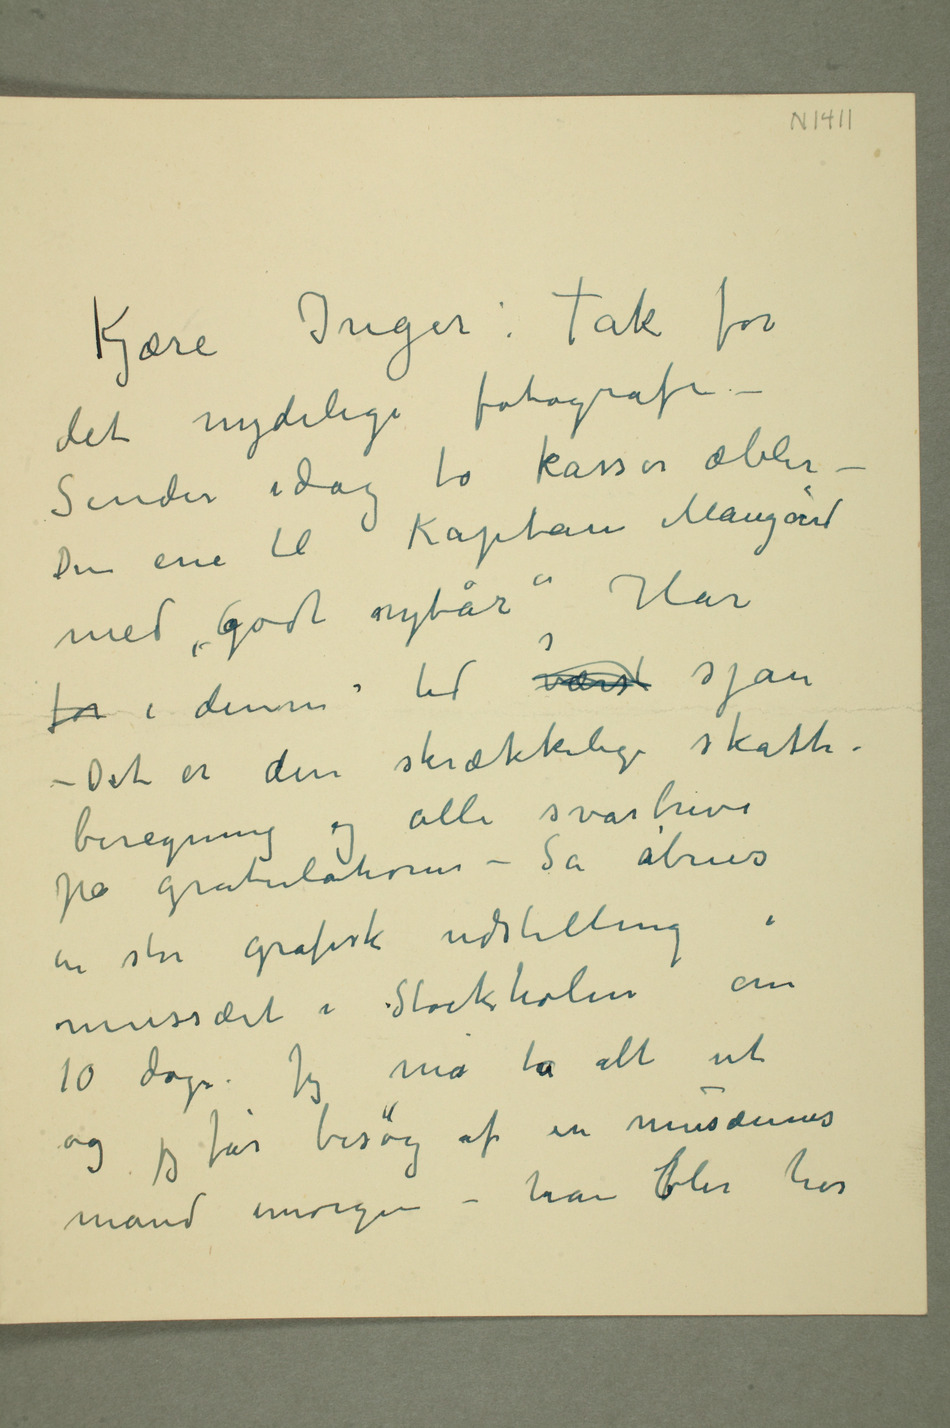 N1411
Kjære Inger. Tak for
det nydelige fotografi –
Sender idag to kasser æbler –
Den ene til Kaptain Mangård
med „Godt nytår“ Har
for i denne tid sjau
– Det er den skrækkelige skatte-
beregning og alle svarbreve
på gratulationer – Så åbnes
en stor grafisk udstilling i
mussæet i Stockholm om
10 dage. Jeg må ta alt ut
og jeg får besøg af en musæumsmand
imorgen – han blir her